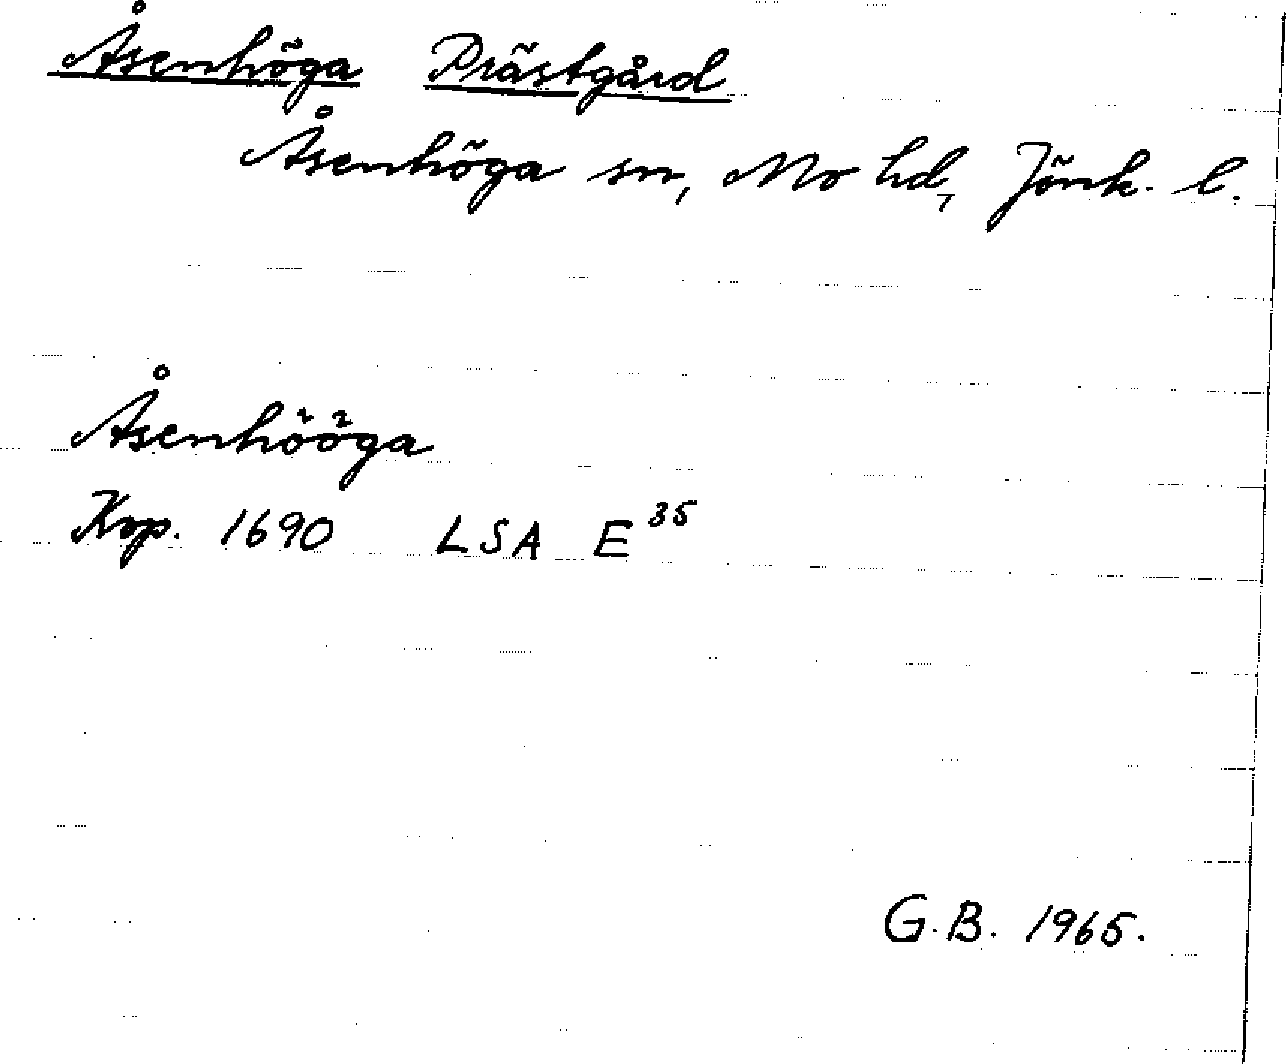 Åsenhöga Prästgård
Åsenhöga sn, Mo hd, Jönk. l.
Åsenhööga
Kop. 1690 LSA E³⁵
G.B. 1965.